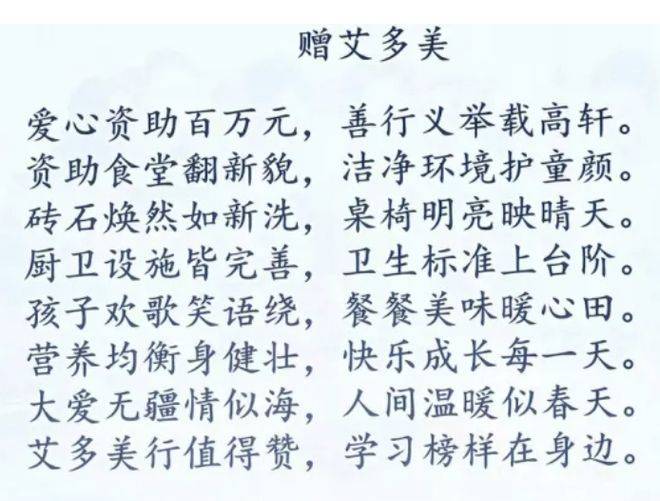 赠艾多美
爱心资助百万元，善行义举载高轩。
资助食堂翻新貌，洁净环境护童颜。
砖石焕然如新洗，桌椅明亮映晴天。
厨卫设施皆完善，卫生标准上台阶。
孩子欢歌笑语绕，餐餐美味暖心田。
营养均衡身健壮，快乐成长每一天。
大爱无疆情似海，人间温暖似春天。
艾多美行值得赞，学习榜样在身边。